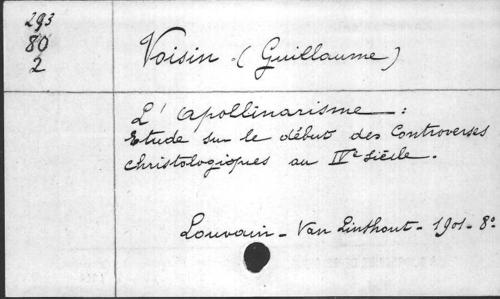 293
80
2
Voisin (Guillaume)
L'Apollinarisme :
Etude sur le début des Controverses
christologiques au IVe siècle.
Louvain - Van Linthout - 1901 - 8o